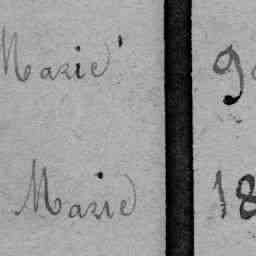 Marié 9
Marié 18